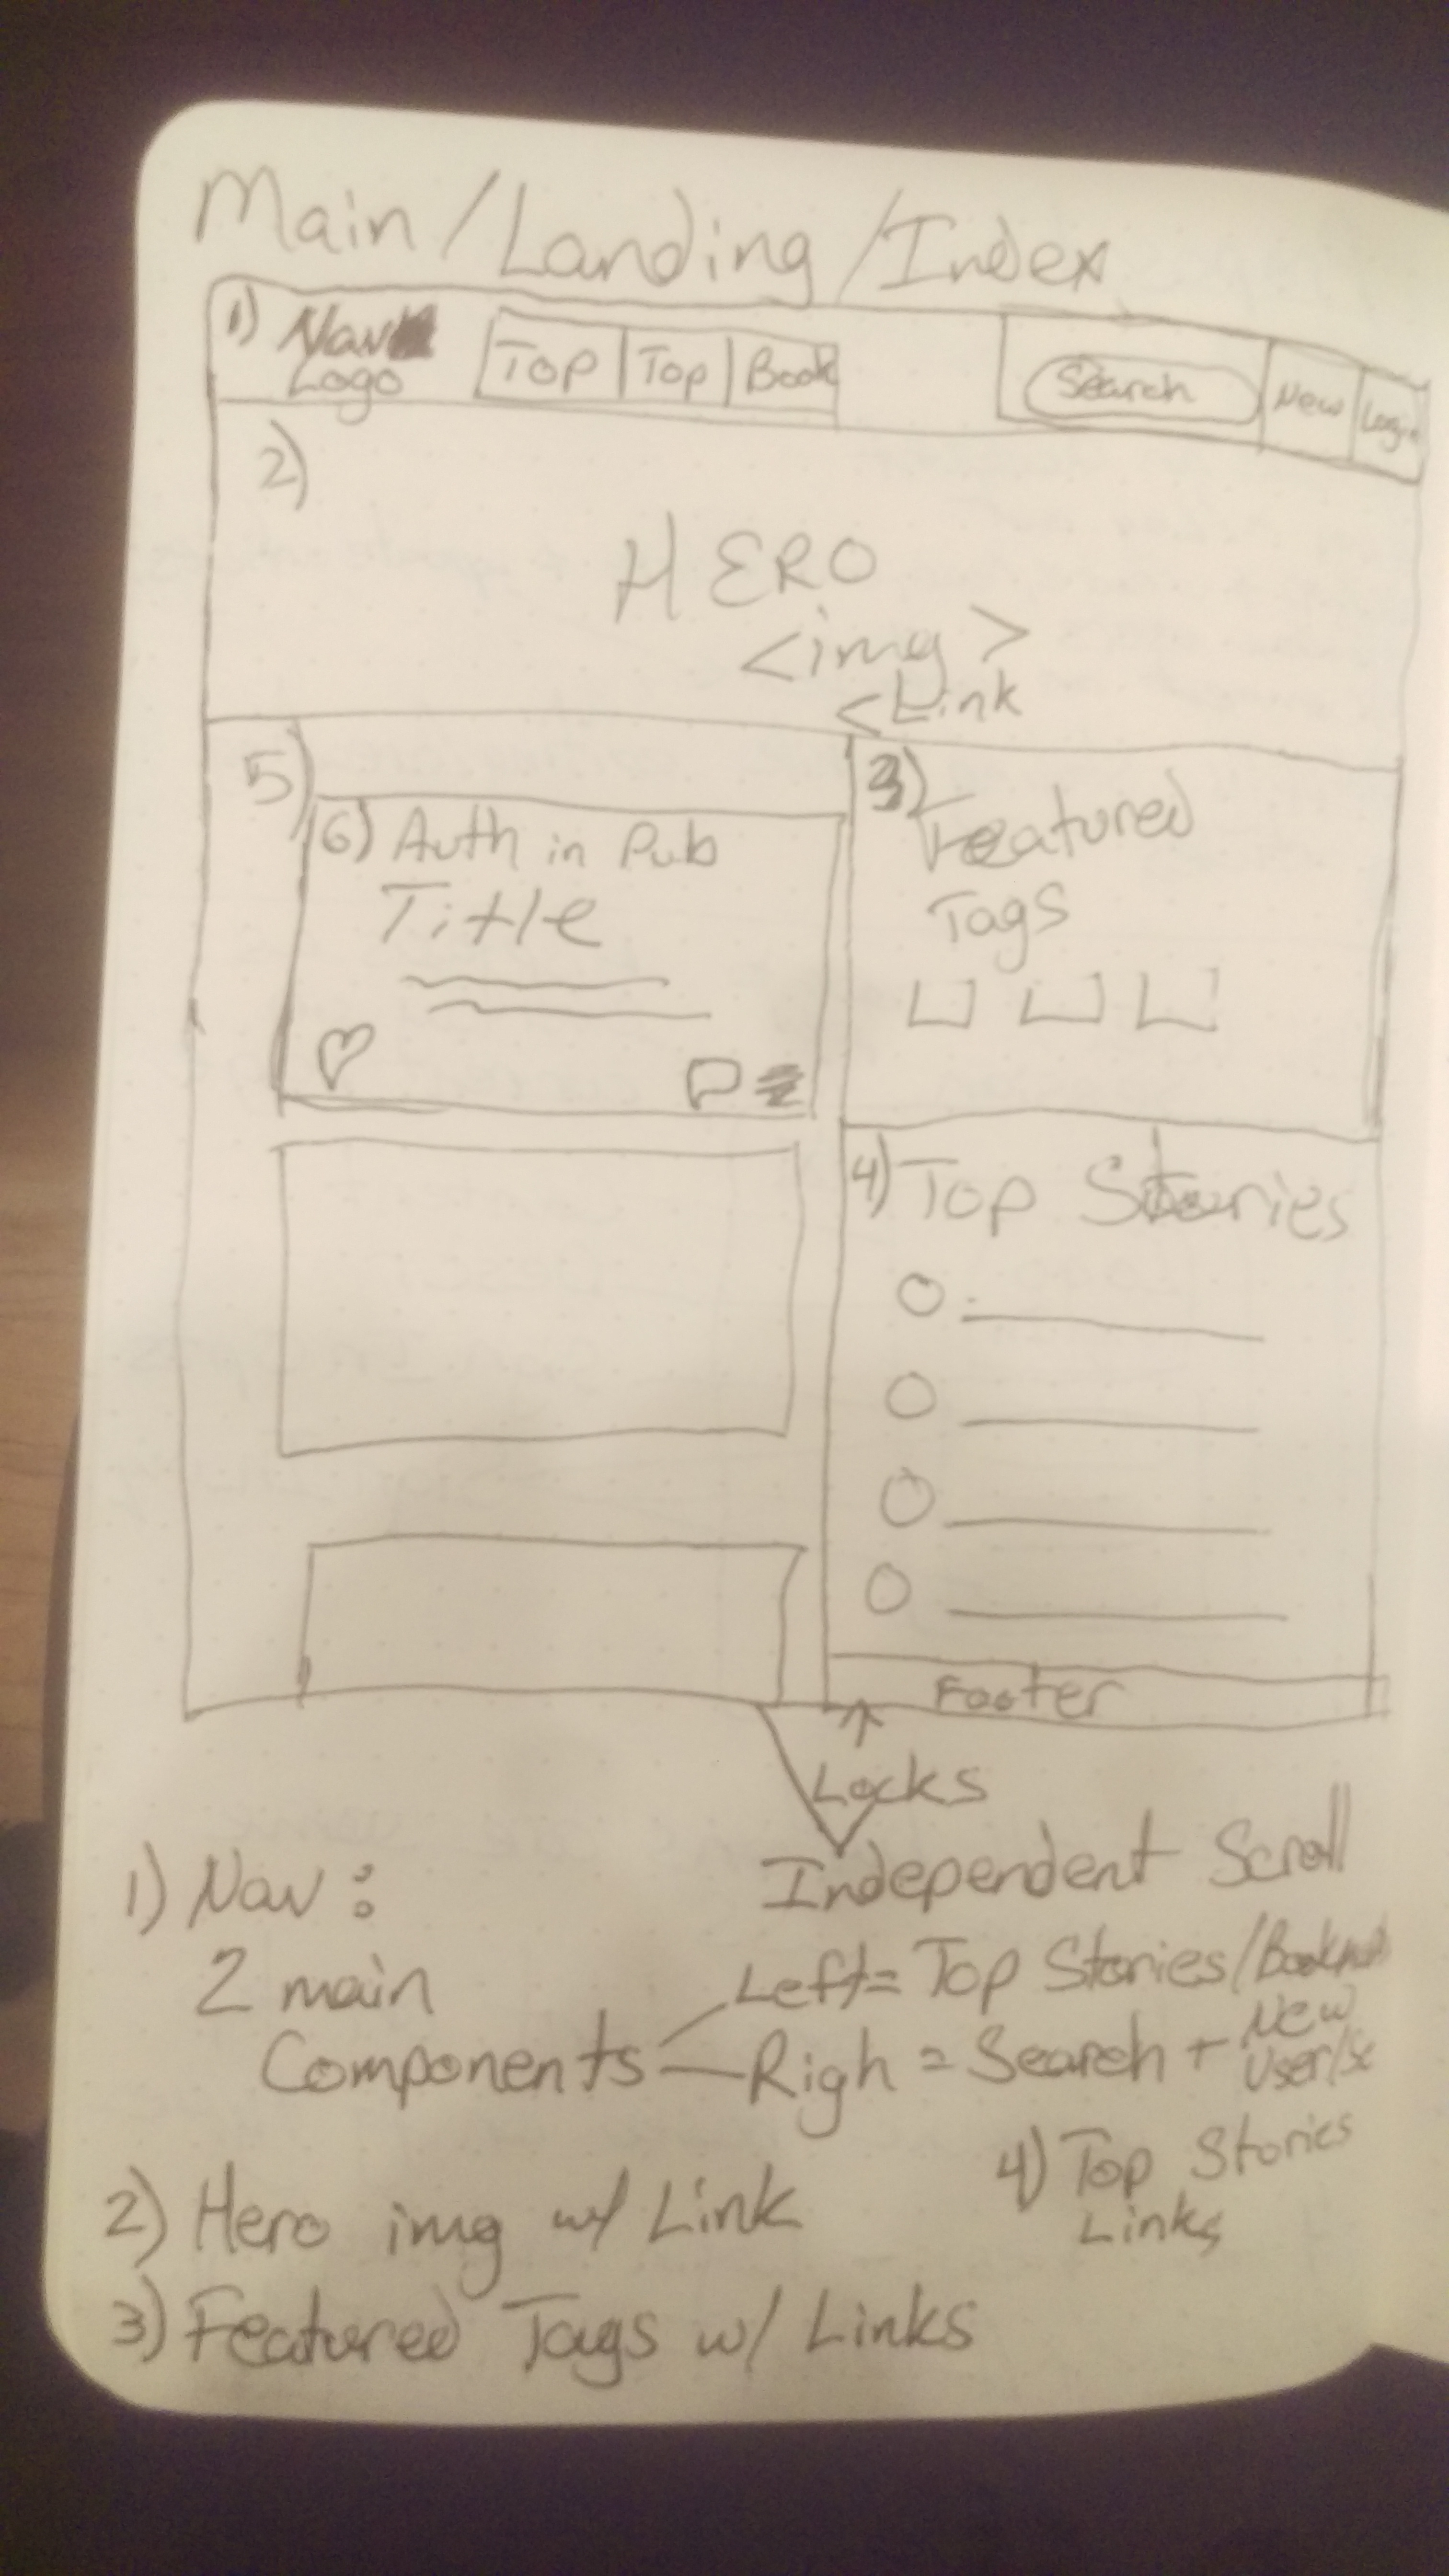 Main/Landing/Index
1) Nav
Logo
Top
Top
Book
Search
New
Login
2)
HERO
<img>
<Link
5)
6) Auth in Pub
Title
3)
Featured
Tags
4) Top Stories
Footer
Locks
Independent Scroll
1) Nav:
2 main
Components
Left = Top Stories/
Righ = Search + New
User/
2) Hero img w/ Link
3) Featured Tags w/ Links
4) Top Stories
Links